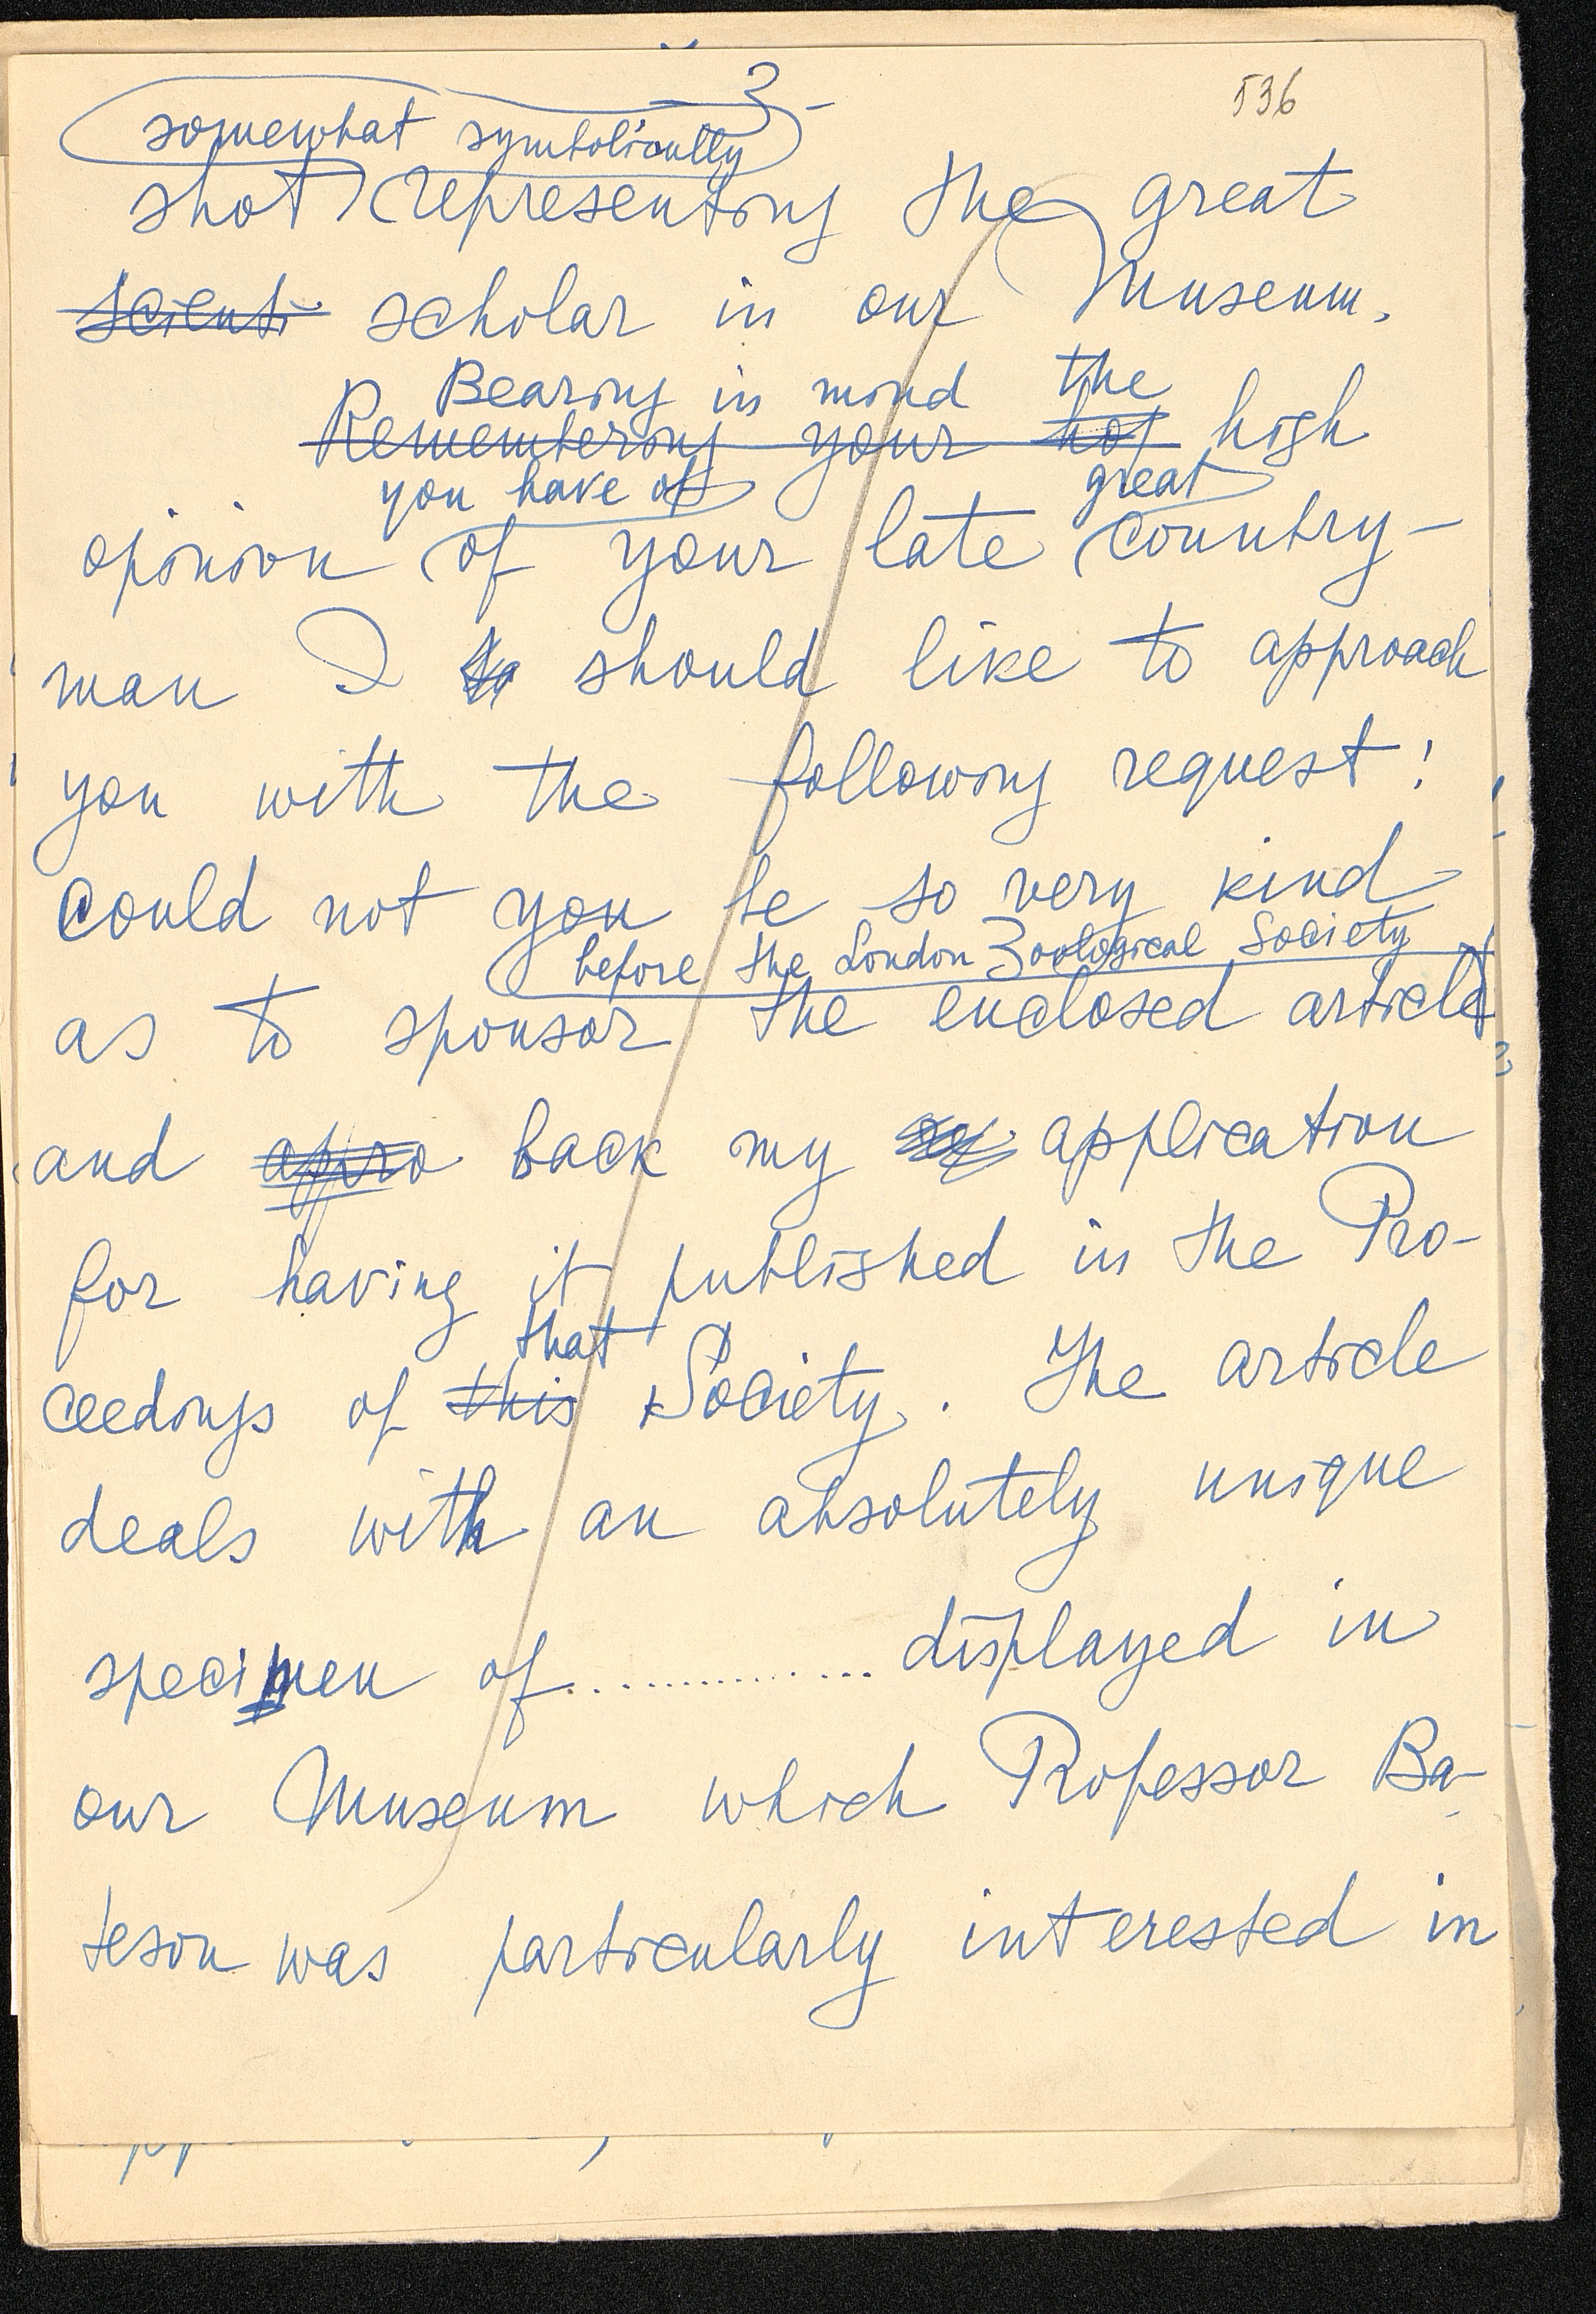 - 3 -
536
somewhat symbolically
shot representing the great
scienti scholar in our Museum.
Bearing in mind the
Remembering your hof high
you have of great
opinion of your late country-
man I should like to approach
you with the following request:
could not you be so very kind
before the London Zoological Society
as to sponsor the enclosed article
and appro back my application
for having it published in the Pro-
that
ceedings of this Society. The article
deals with an absolutely unique
specimen of .............. displayed in
our Museum which Professor Ba-
teson was particularly interested in